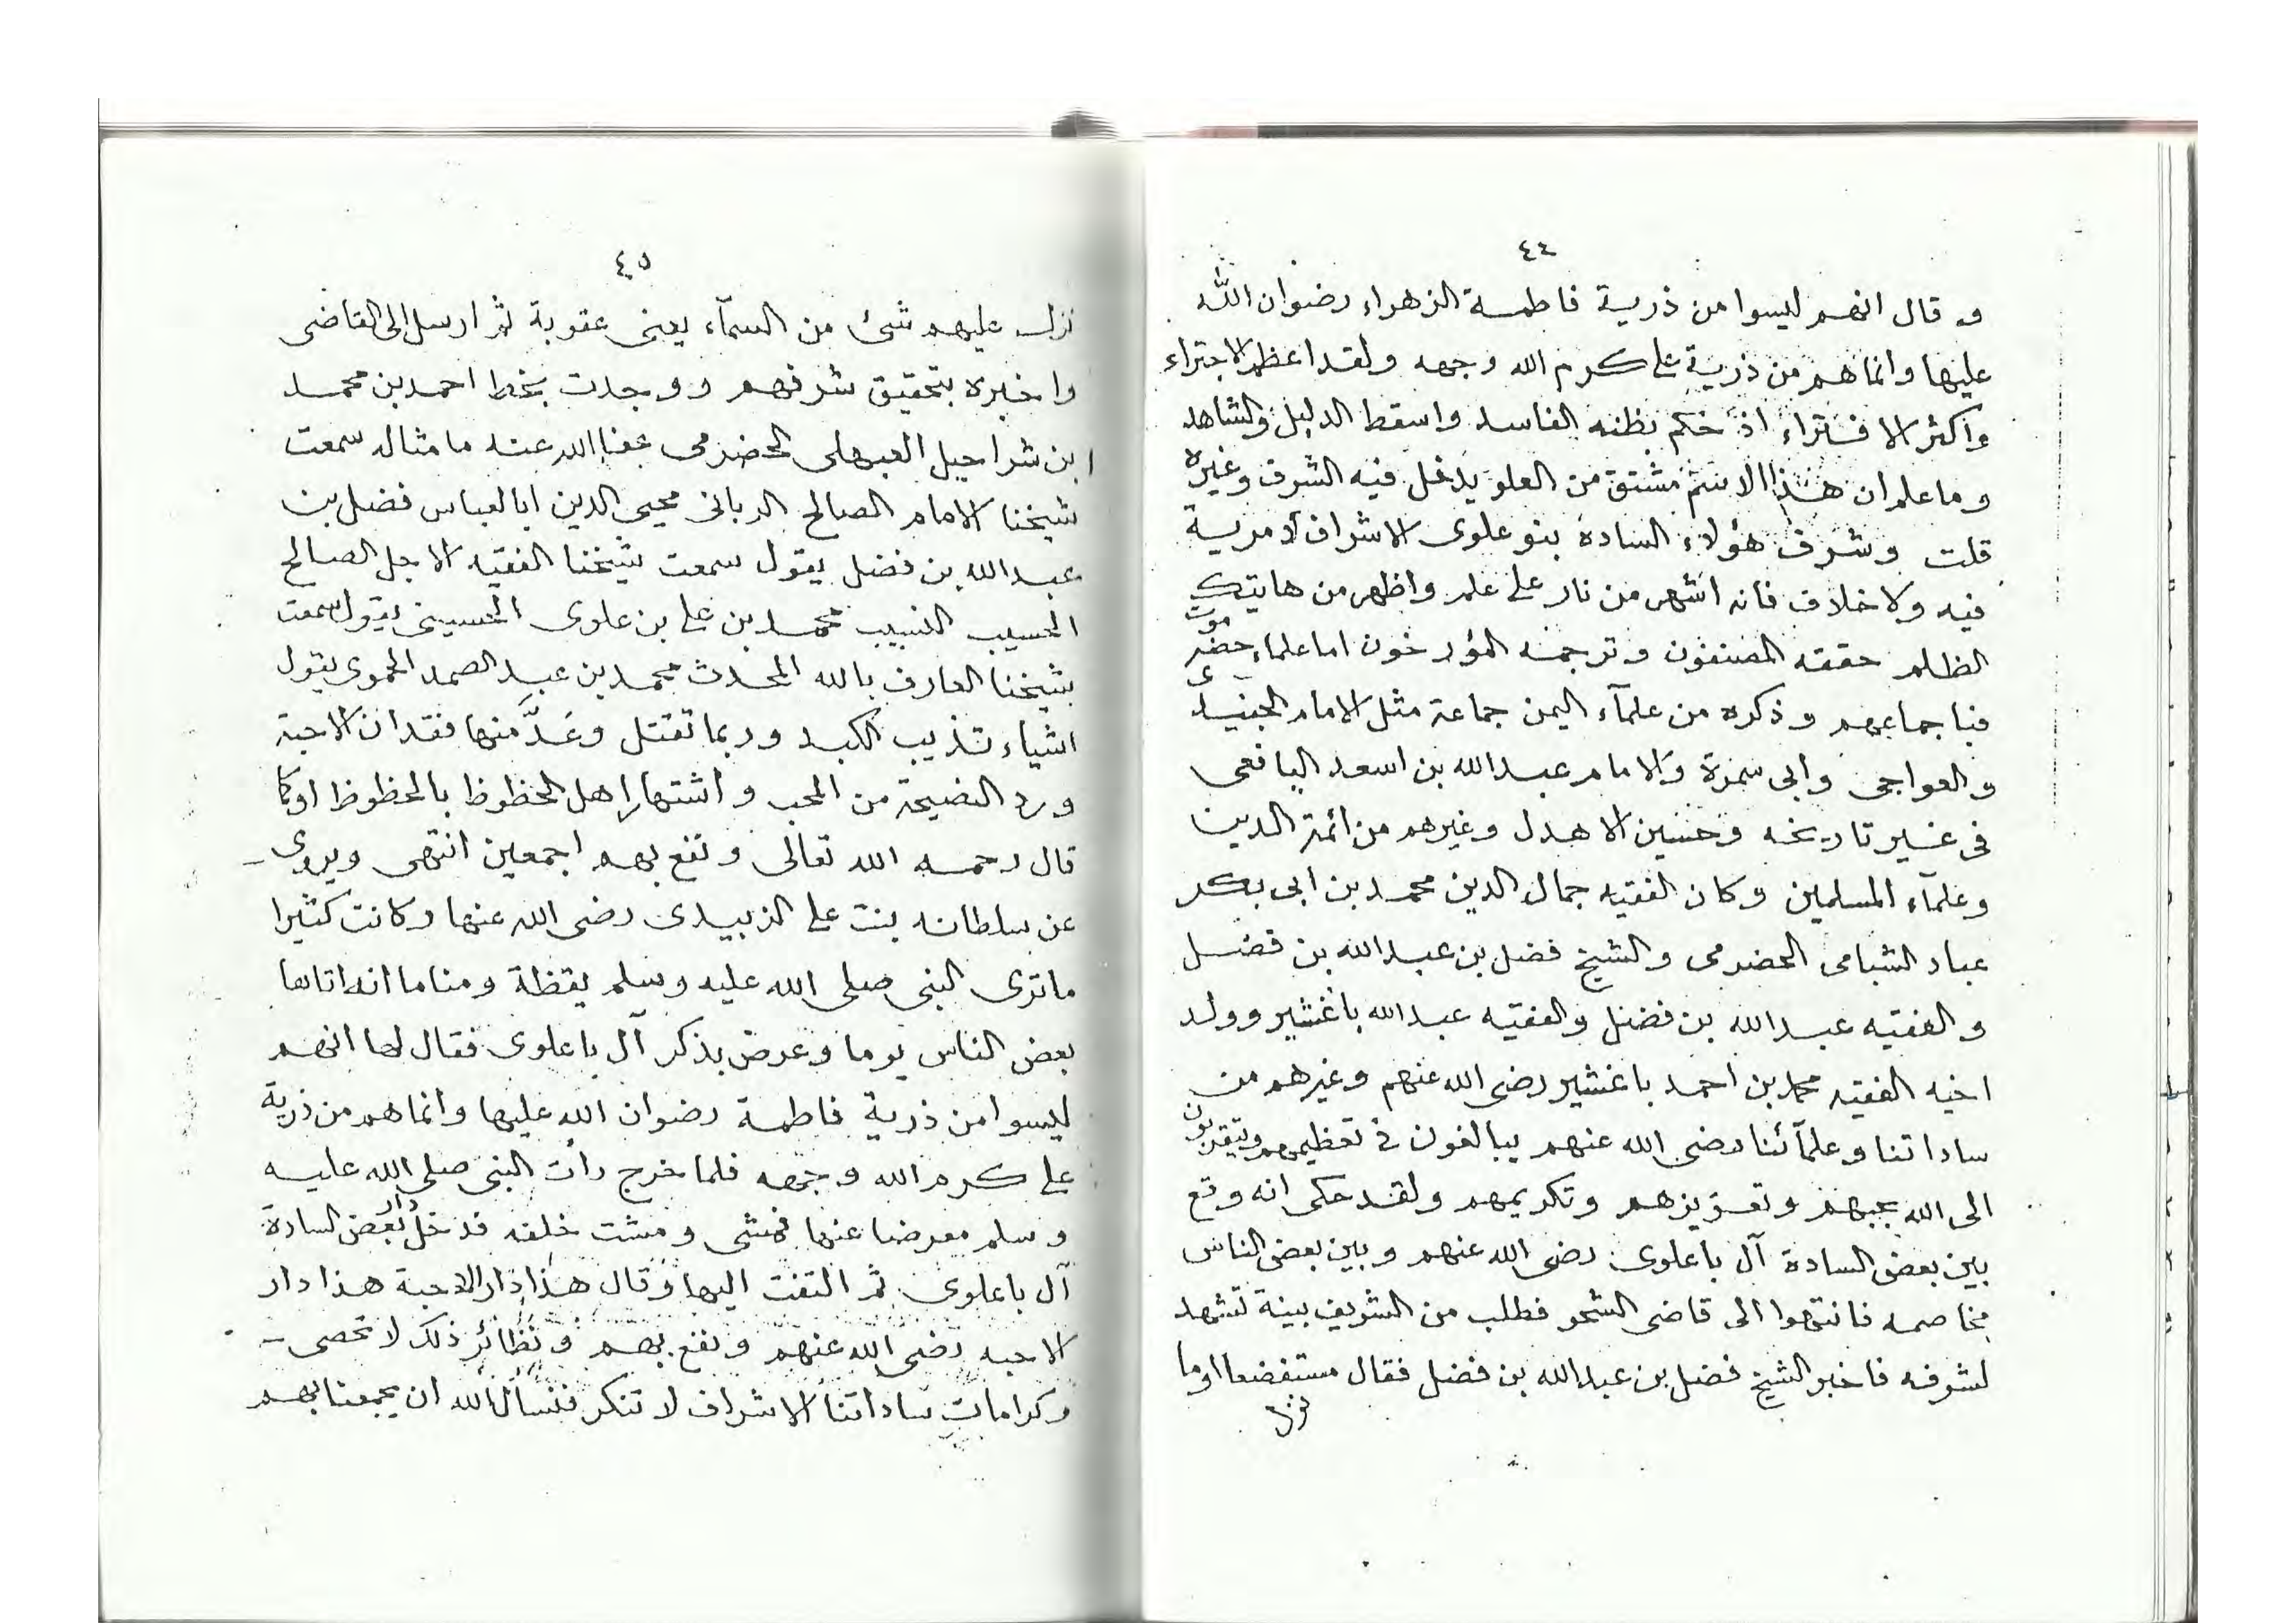 ٤٤
و قال انهم ليسوا من ذرية فاطمة الزهراء رضوان الله
عليها وانما هم من ذرية علي كرم الله وجهه ولقد اعظم الاجتراء
واكثر الافتراء اذ حكم بظنه الفاسد واسقط الدليل والشاهد
وما علم ان هذا الاسم مشتق من العلو يدخل فيه الشرف وغيره
قلت وشرف هؤلاء السادة بنو علوى الاشراف لا مرية
فيه ولا خلاف فانه اشهر من نار على علم واظهر من هاتيك
الظلم حققه المصنفون وترجمه المؤرخون اما علماء حضرموت
فباجماعهم وذكره من علمآء اليمن جماعة مثل الامام الجنيد
والعواجى وابى سمرة والامام عبد الله بن اسعد اليافعى
فى غير تاريخه وحسين الاهدل وغيرهم من ائمة الدين
وعلمآء المسلمين وكان الفقيه جمال الدين محمد بن ابى بكر
عباد الشبامى الحضرمى والشيخ فضل بن عبد الله بن فضل
والفقيه عبد الله بن فضل والفقيه عبد الله باغشير وولد
اخيه الفقيه محمد بن احمد باغشير رضى الله عنهم وغيرهم من
ساداتنا وعلمآئنا رضى الله عنهم يبالغون في تعظيمهم ويتقربون
الى الله بحبهم وتعزيزهم وتكريمهم ولقد حكى انه وقع
بين بعض السادة آل باعلوى رضى الله عنهم وبين بعض الناس
مخاصمه فانتهوا الى قاضى الشحر فطلب من الشريف بينة تشهد
لشرفه فاخبر الشيخ فضل بن عبد الله بن فضل فقال مستفضعا اوما
نزل
٤٥
نزل عليهم شئ من السمآء يعنى عقوبة ثم ارسل الى القاضى
واخبره بتحقيق شرفهم ووجدت بخط احمد بن محمد
ابن شراحيل العبهلى الحضرمى عفا الله عنه ما مثاله سمعت
شيخنا الامام الصالح الربانى محيى الدين ابا العباس فضل بن
عبد الله بن فضل يقول سمعت شيخنا الفقيه الاجل الصالح
الحسيب النسيب محمد بن علي بن علوى الحسينى يقول سمعت
شيخنا العارف بالله المحدث محمد بن عبد الصمد الحموى يقول
اشياء تذيب الكبد وربما تقتل وعَدَّ منها فقدان الاحبة
ورد النصيحة من المحب واشتهار اهل الحظوظ بالحظوظ اوكما
قال رحمه الله تعالى ونفع بهم اجمعين انتهى ويروى
عن سلطانه بنت علي الزبيدى رضى الله عنها وكانت كثيرا
ما ترى النبى صلى الله عليه وسلم يقظة ومناما انه اتاها
بعض الناس يوما وعرض بذكر آل باعلوى فقال لها انهم
ليسوا من ذرية فاطمة رضوان الله عليها وانما هم من ذرية
علي كرم الله وجهه فلما خرج رأت النبى صلى الله عليه
وسلم معرضا عنها فمشى ومشت خلفه فدخل دار بعض السادة
آل باعلوى ثم التفت اليها وقال هذا دار الاحبة هذا دار
الاحبه رضى الله عنهم ونفع بهم ونظائر ذلك لا تحصى
وكرامات ساداتنا الاشراف لا تنكر فنسأل الله ان يجمعنا بهم